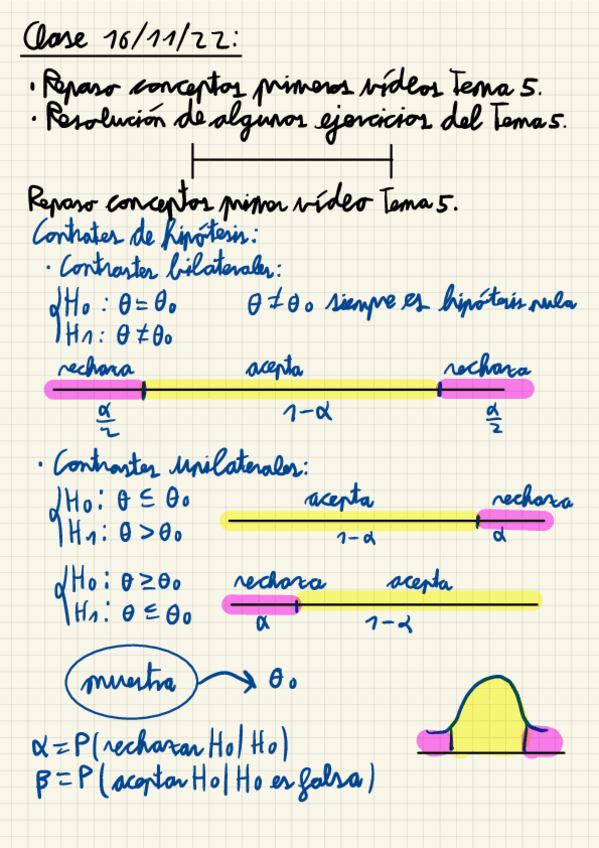 Clase 16/11/22:
· Repaso conceptos primeros vídeos Tema 5.
· Resolución de algunos ejercicios del Tema 5.
Repaso conceptos primer vídeo Tema 5.
Contrates de hipótesis:
· Contrastes bilaterales:
H0: θ = θ0 θ ≠ θ0 siempre es hipótesis nula
H1: θ ≠ θ0
rechaza acepta rechaza
α/2 1-α α/2
· Contrastes unilaterales:
H0: θ ≤ θ0 acepta rechaza
H1: θ > θ0 1-α α
H0: θ ≥ θ0 rechaza acepta
H1: θ ≤ θ0 α 1-α
muestra → θ0
α = P(rechazar H0 | H0)
β = P(aceptar H0 | H0 es falsa)